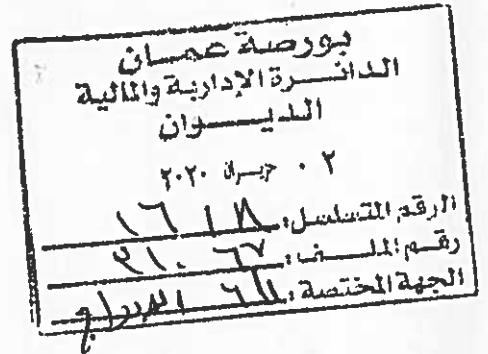 بورصة عمان
الدائرة الإدارية والمالية
الديوان
٠٢ حزيران ٢٠٢٠
الرقم المتسلسل:
رقم الملف:
الجهة المختصة: الإدراج